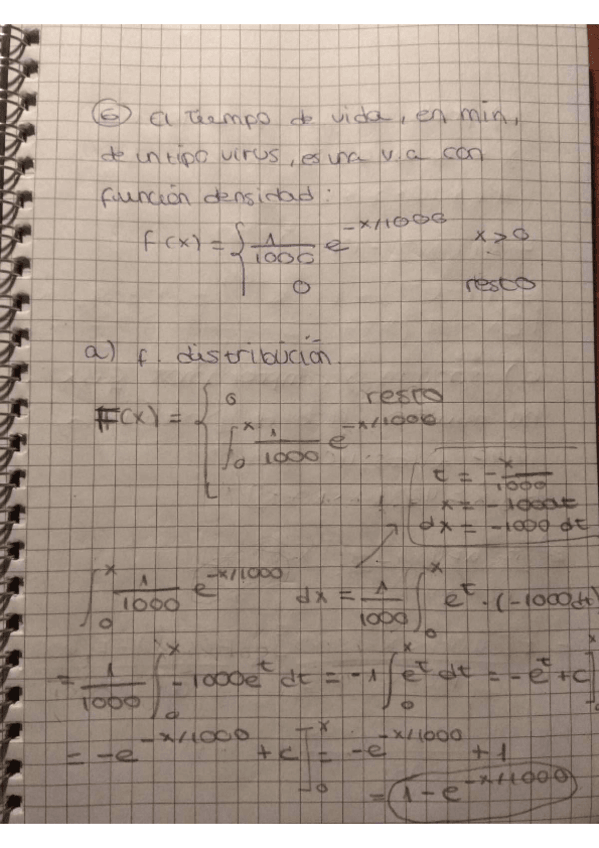 ⑥ El tiempo de vida, en min,
de un tipo virus, es una v.a con
función densidad:
f(x) = { 1/1000 e^(-x/1000) x > 0
0 resto
a) f. distribución.
F(x) = { 0 resto
∫_0^x 1/1000 e^(-x/1000)
t = -x/1000
x = -1000t
dx = -1000 dt
∫_0^x 1/1000 e^(-x/1000) dx = 1/1000 ∫_0^x e^t · (-1000dt)
= 1/1000 ∫_0^x -1000e^t dt = -1 ∫_0^x e^t dt = -e^t + c]_0^x
= -e^(-x/1000) + c]_0^x = -e^(-x/1000) + 1
= 1 - e^(-x/1000)